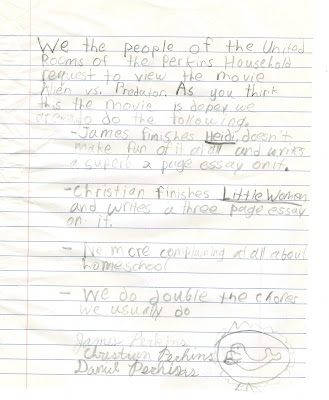 We the people of the United
Rooms of the Perkins Household
request to view the movie
Alien vs. Predator. As you think
this the movie is dopey we
to do the following.
- James finishes Heidi, doesn't
make fun of it at all and writes
a superb 2 page essay on it.
- Christian finishes Little Women
and writes a three page essay
on it.
- No more complaining at all about
homeschool
- We do double the chores
we usually do
James Perkins
Christian Perkins
Daniel Perkins